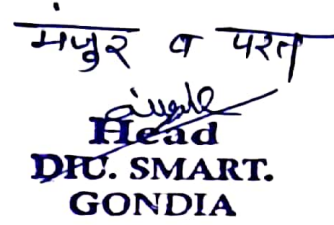 मंजुर व परत
Head
DIU. SMART.
GONDIA